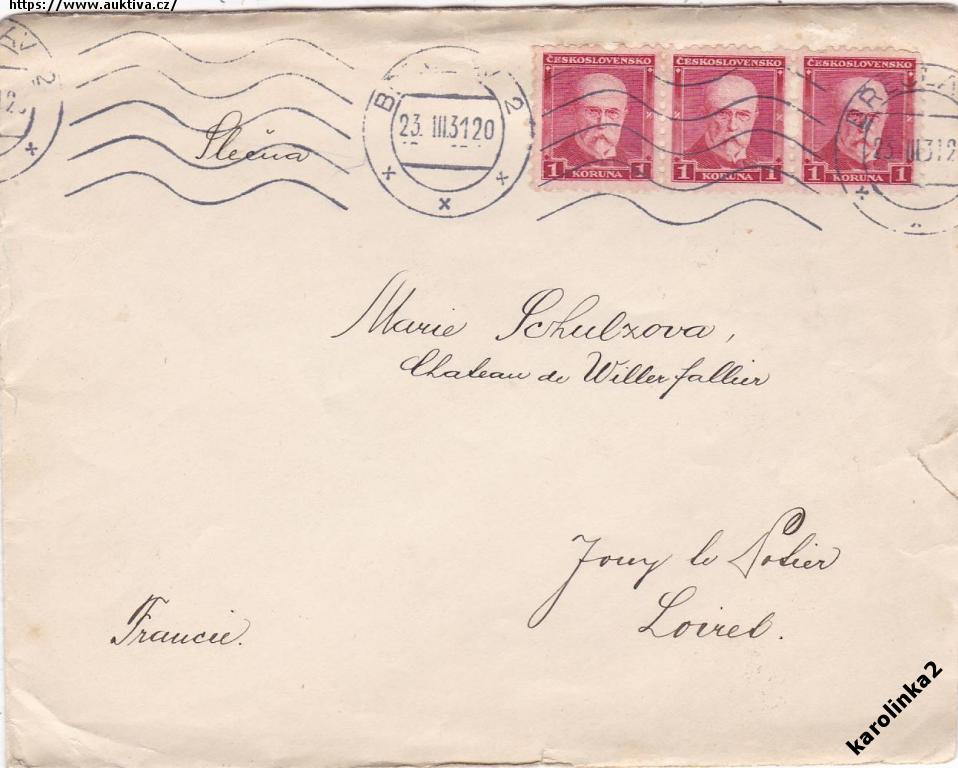 https://www.auktiva.cz/
ČESKOSLOVENSKO ČESKOSLOVENSKO ČESKOSLOVENSKO
23. III 31 20
1 KORUNA 1 1 KORUNA 1 1 KORUNA 1
Slečna
Marie Schulzova,
Chateau de Willerfallier
Jouy le Potier
Loiret.
Francie.
karolinka2